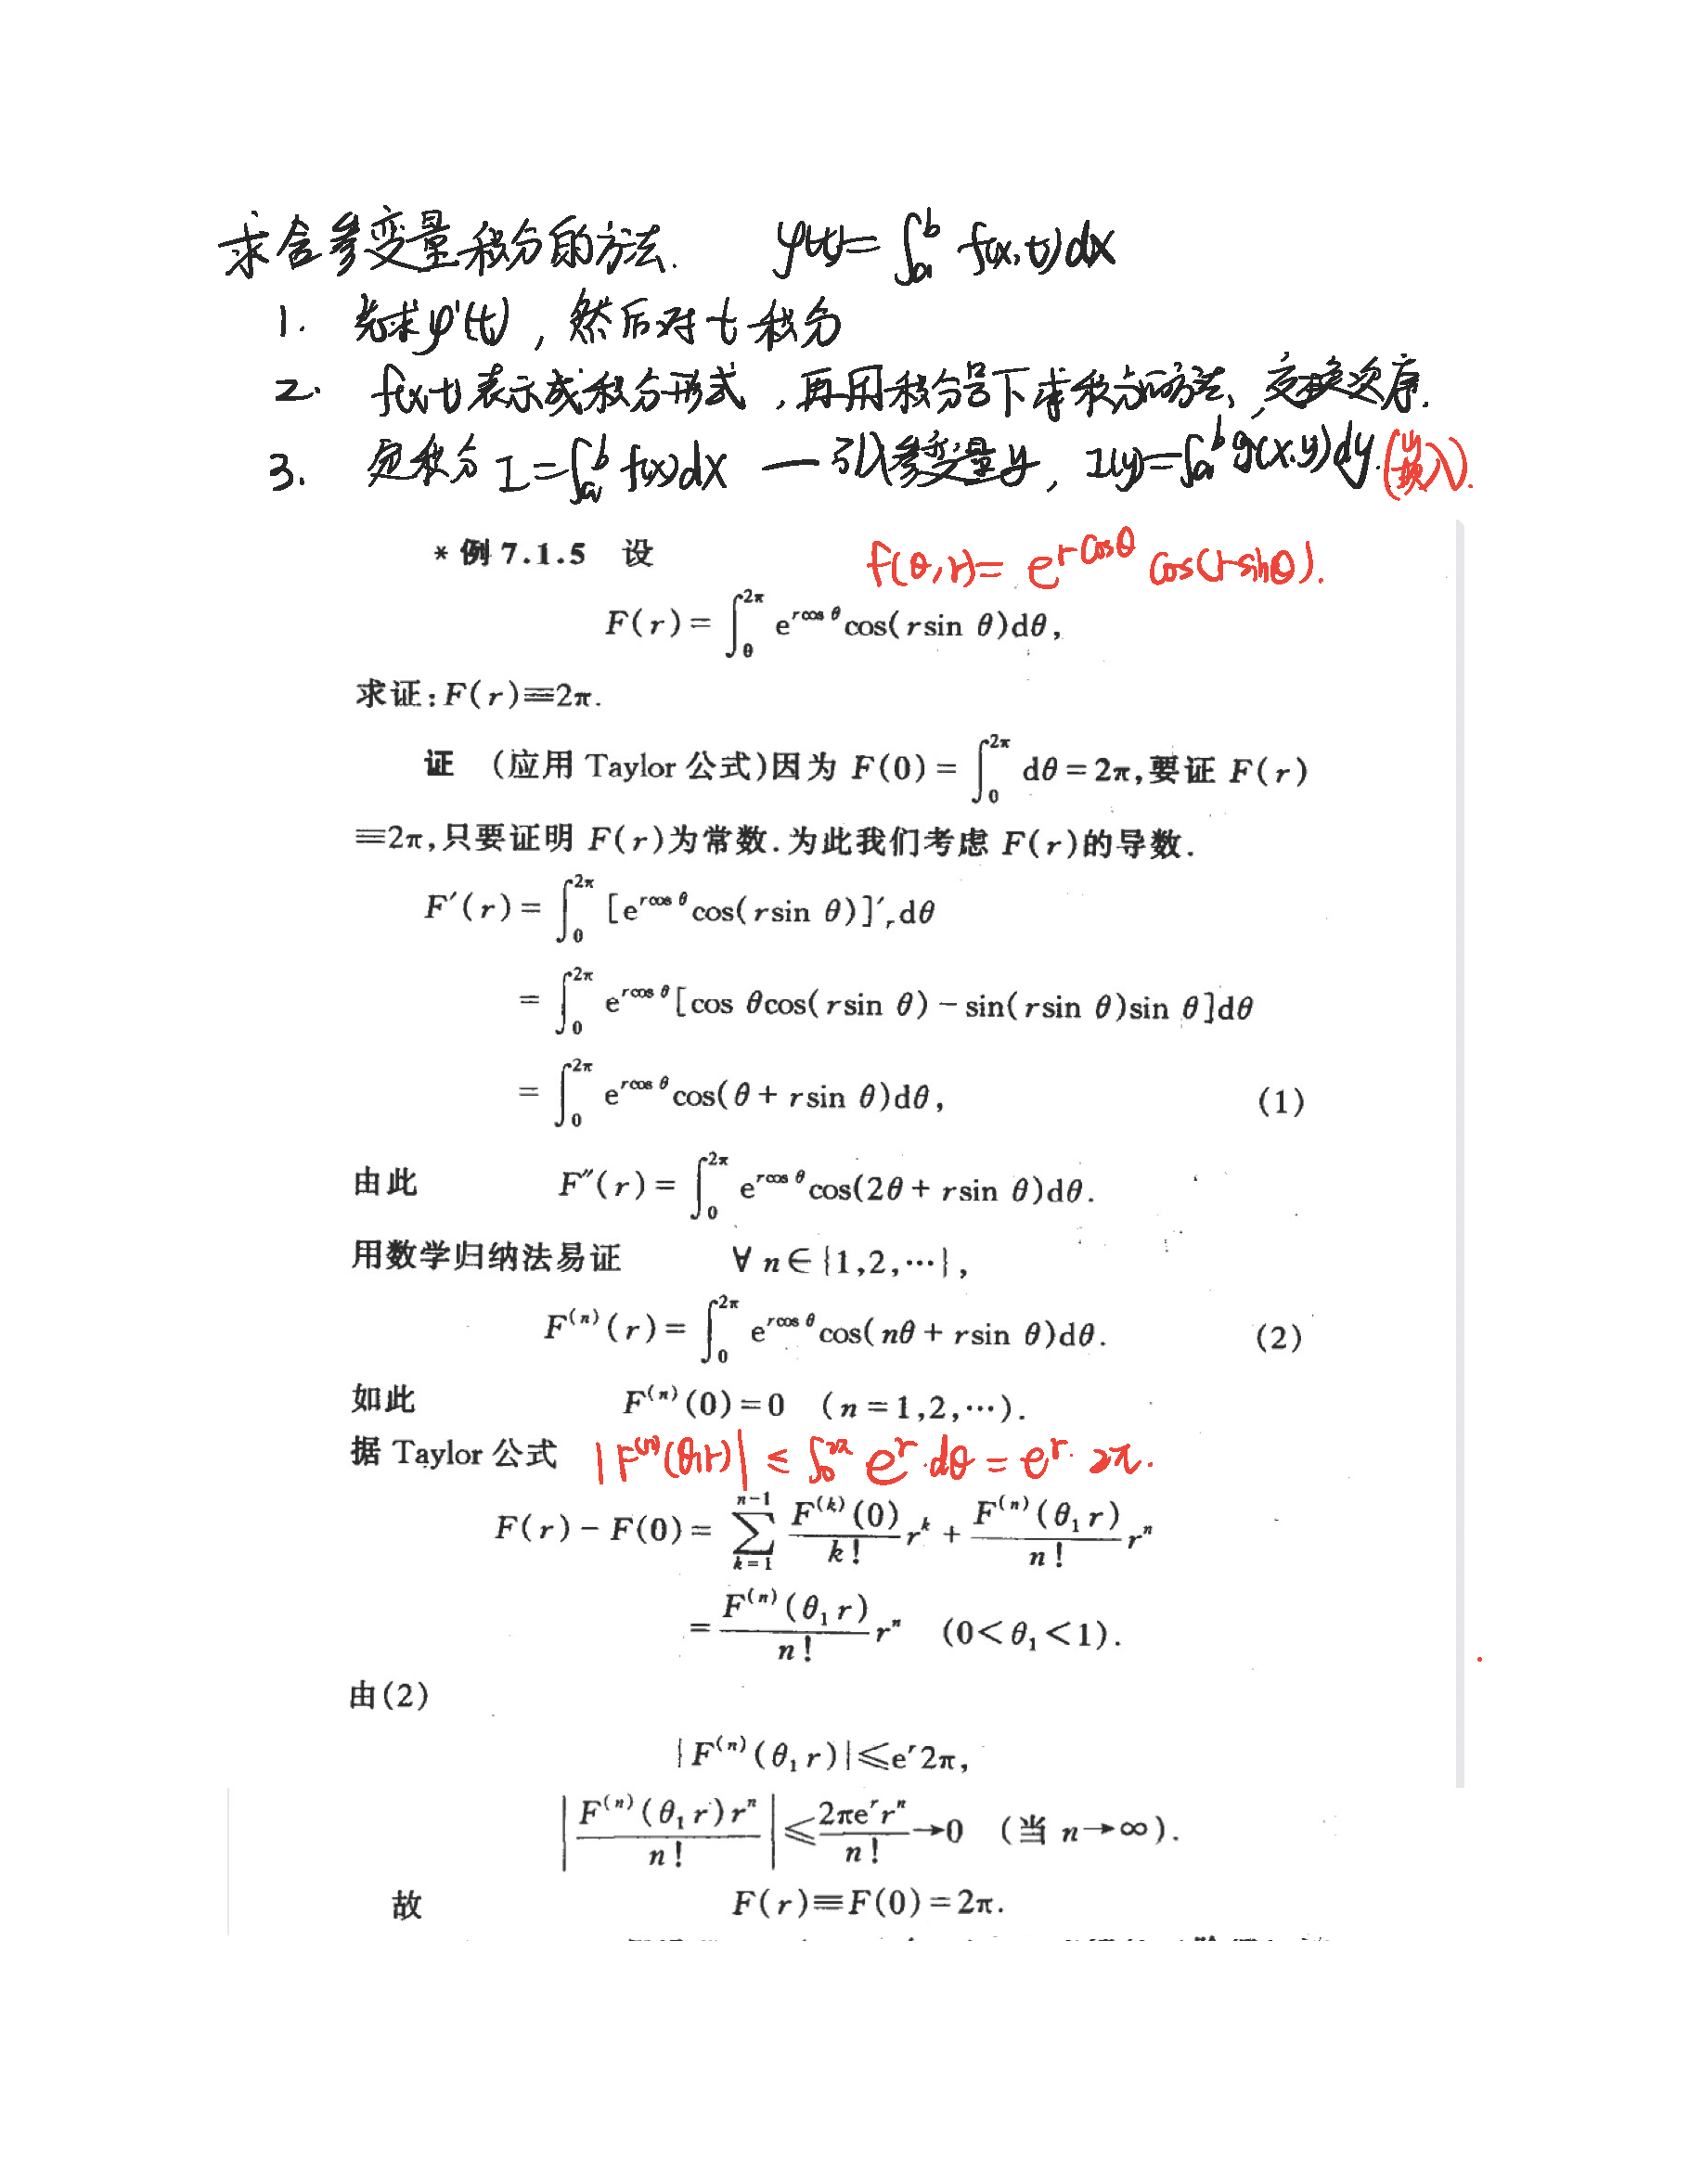 求含参变量积分的方法. φ(t)=∫_a^b f(x,t)dx
1. 先求φ'(t), 然后对t积分
2. f(x,t)表示成积分形式, 再用积分号下求积分的方法, 交换次序.
3. 定积分 I=∫_a^b f(x)dx — 引入参变量y, I(y)=∫_a^b g(x,y)dy.
*例 7.1.5 设 f(θ,r)= e^{rcosθ} cos(rsinθ).
F(r)=∫_0^{2π} e^{rcos θ}cos(rsin θ)dθ,
求证:F(r)≡2π.
证 (应用 Taylor 公式)因为 F(0)=∫_0^{2π} dθ=2π,要证 F(r)
≡2π,只要证明 F(r)为常数.为此我们考虑 F(r)的导数.
F′(r)=∫_0^{2π} [e^{rcos θ}cos(rsin θ)]′_r dθ
=∫_0^{2π} e^{rcos θ}[cos θcos(rsin θ)-sin(rsin θ)sin θ]dθ
=∫_0^{2π} e^{rcos θ}cos(θ+rsin θ)dθ, (1)
由此 F″(r)=∫_0^{2π} e^{rcos θ}cos(2θ+rsin θ)dθ.
用数学归纳法易证 ∀ n∈{1,2,⋯},
F^{(n)}(r)=∫_0^{2π} e^{rcos θ}cos(nθ+rsin θ)dθ. (2)
如此 F^{(n)}(0)=0 (n=1,2,⋯).
据 Taylor 公式 |F^{(n)}(θ_1r)| ≤ ∫_0^{2π} e^r·dθ = e^r·2π.
F(r)-F(0)=∑_{k=1}^{n-1} \frac{F^{(k)}(0)}{k!}r^k+\frac{F^{(n)}(θ_1 r)}{n!}r^n
=\frac{F^{(n)}(θ_1 r)}{n!}r^n (0<θ_1<1).
由(2)
|F^{(n)}(θ_1 r)|≤e^r2π,
|\frac{F^{(n)}(θ_1 r)r^n}{n!}|≤\frac{2πe^r r^n}{n!}→0 (当 n→∞).
故 F(r)≡F(0)=2π.